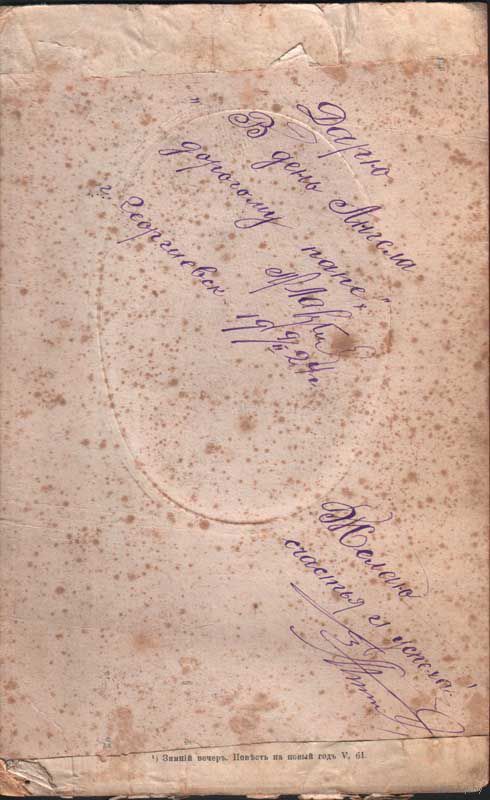 Дарю
"В день Ангела
дорогому папе"
г. Георгиевск
19 24 г.
Желаю
счастья и успеха!
¹) Зимній вечеръ. Повѣсть на новый годъ V, 61.